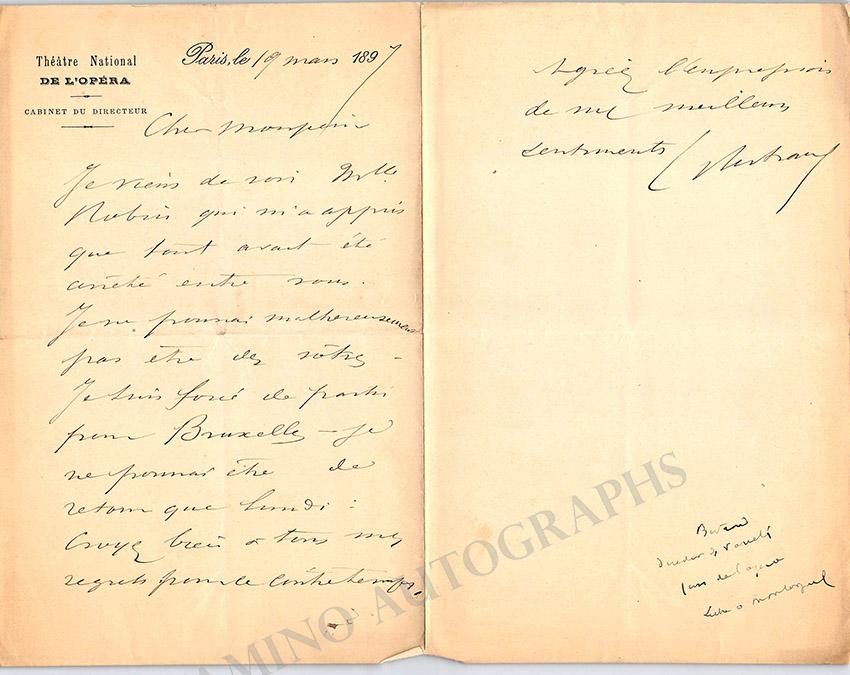 Théâtre National
DE L'OPÉRA
CABINET DU DIRECTEUR
Paris, le 19 mars 1897
Cher Monsieur
Je viens de voir Mlle
Robin qui m'a appris
que tout avait été
arrêté entre vous.
Je ne pourrai malheureusement
pas être des vôtres –
Je suis forcé de partir
pour Bruxelles – je
ne pourrai être de
retour que lundi :
Croyez bien à tous mes
regrets pour ce contretemps.
Agréez l'expression
de mes meilleurs
sentiments Bertrand
Bertrand
de l'opéra
TAMINO AUTOGRAPHS